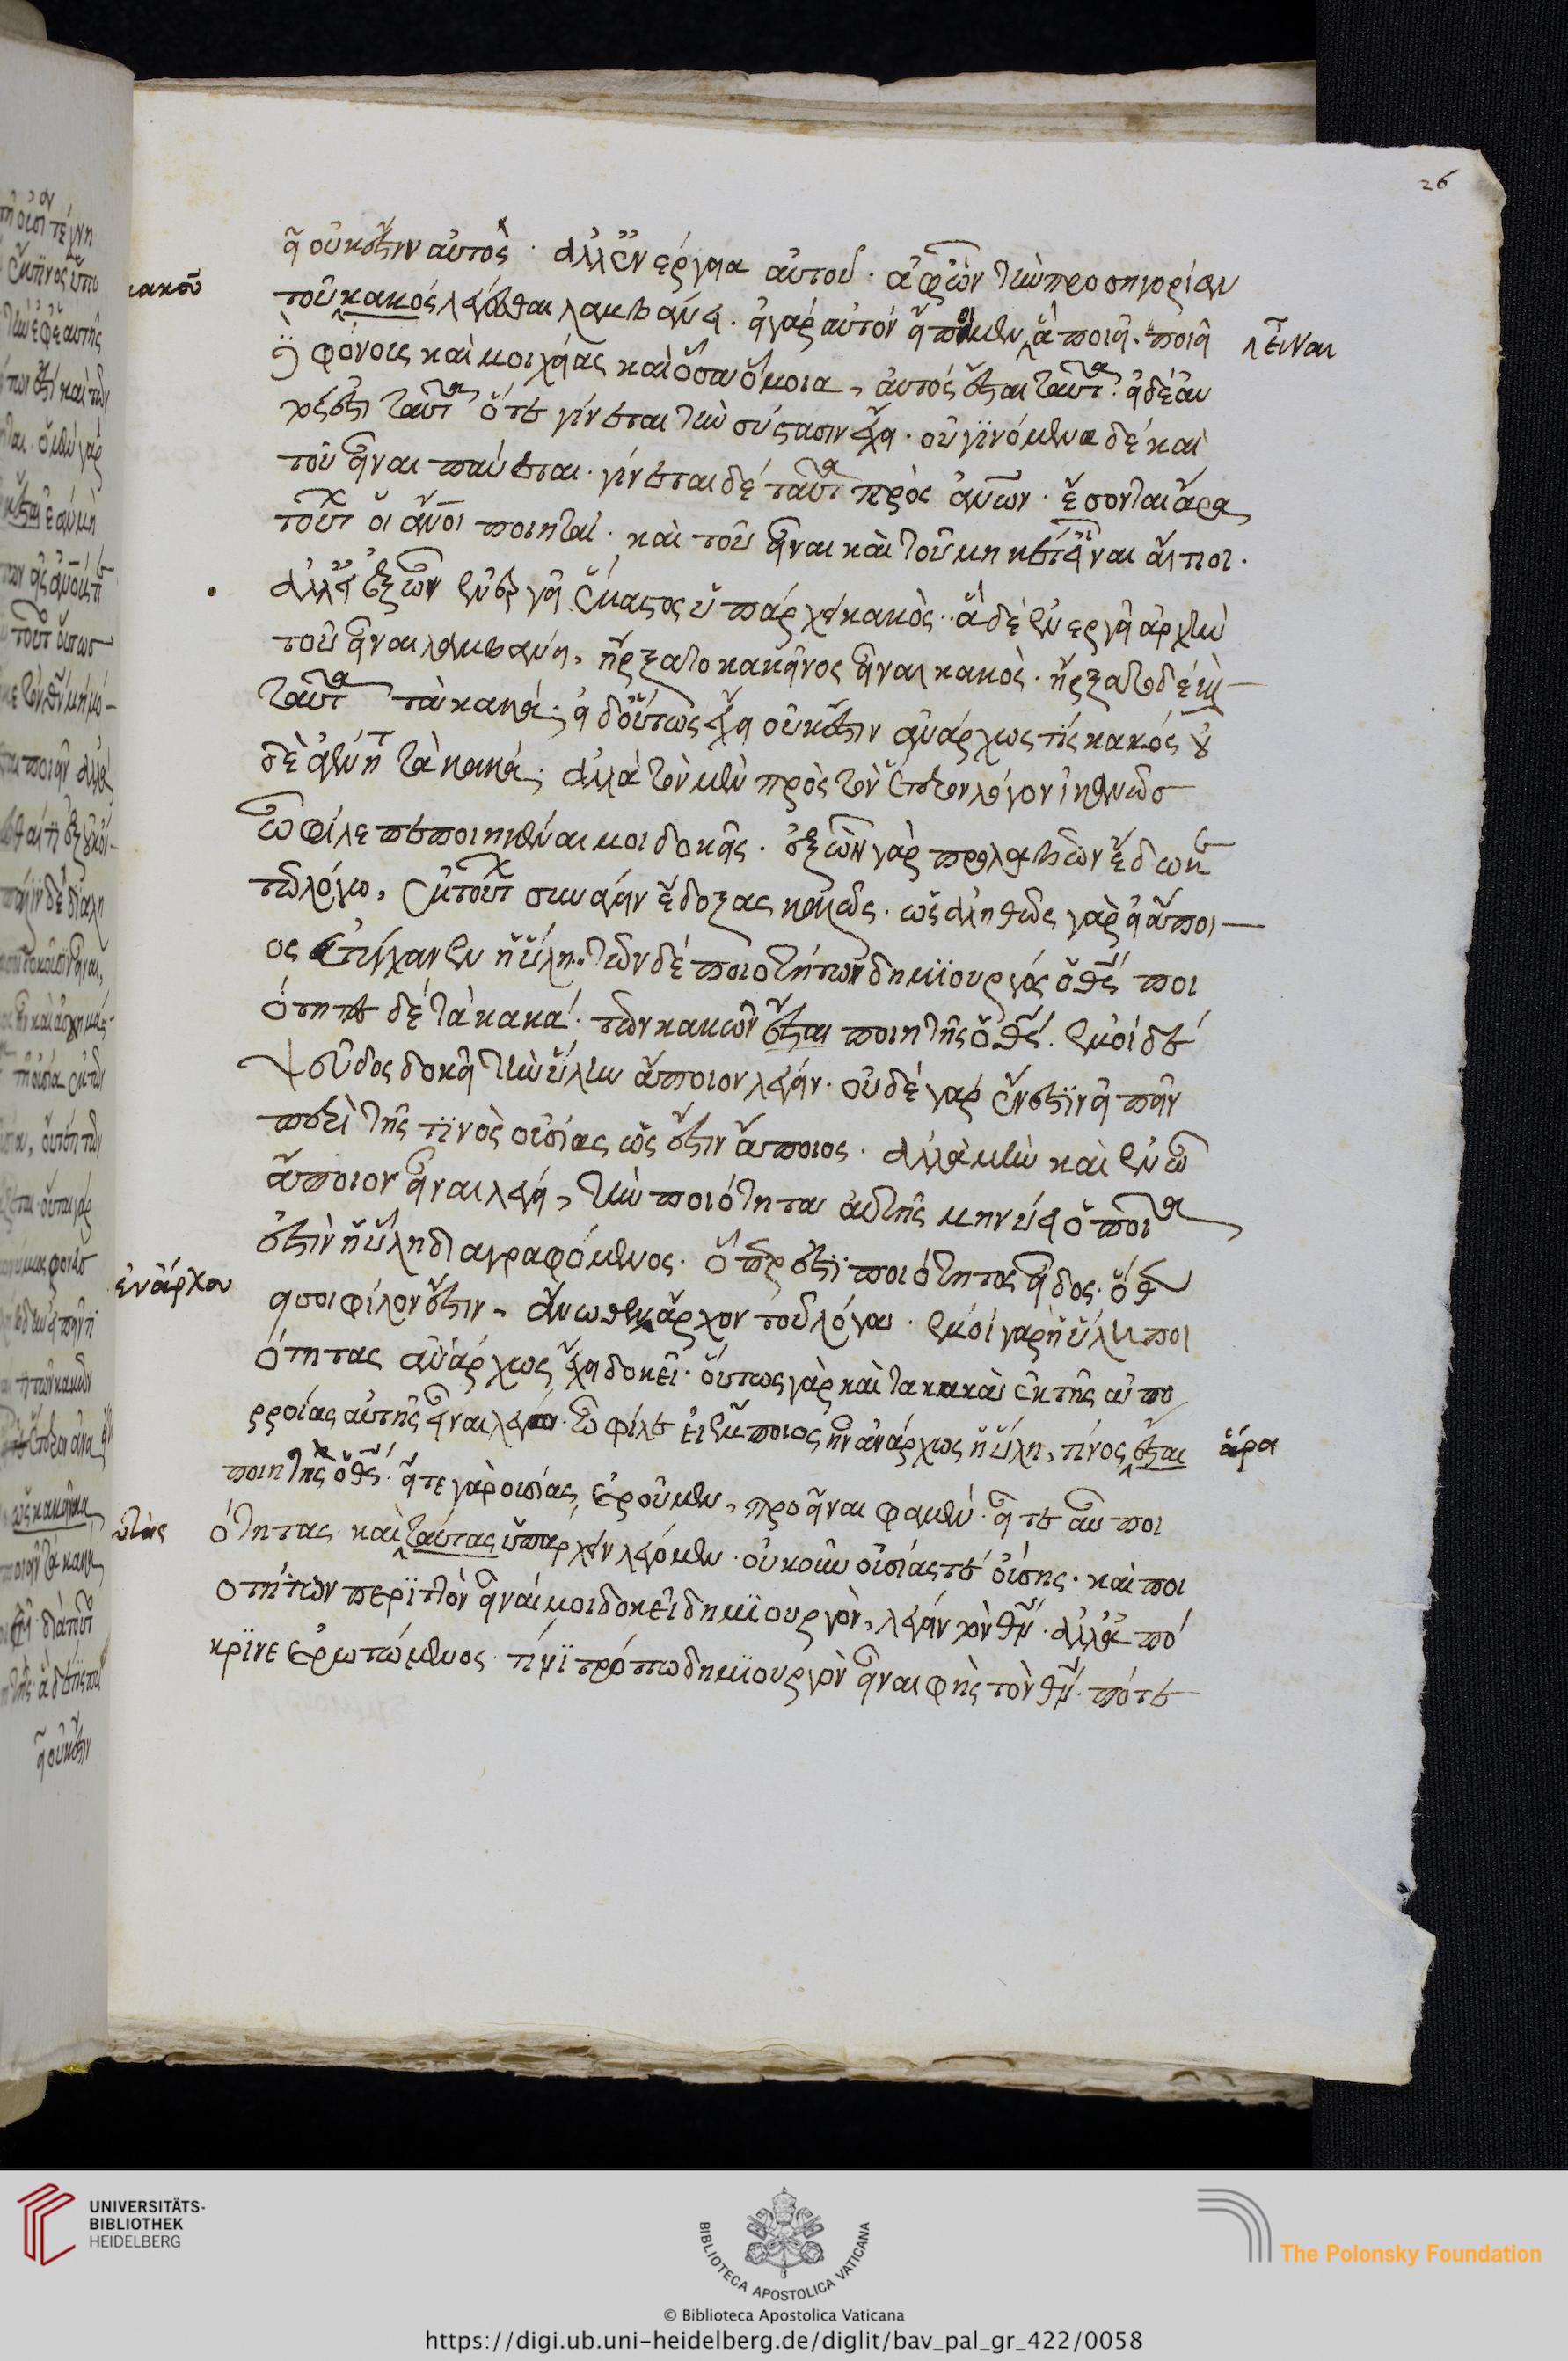 26
ᾗ οὐκ ἔστιν αὐτός· ἀλλ' ἐνέργεια αὐτοῦ· ἀφ' ὧν τὴν προσηγορίαν
κακοῦ
τοῦ κακὸς λέγεσθαι λαμβάνει. εἰ γὰρ αὐτὸν εἴποιμεν ἃ ποιεῖ· ποιεῖ
εἶναι
φόνους καὶ μοιχείας καὶ ὅσα ὅμοια, αὐτὸς ἔσται ταῦτα· εἰ δὲ αὐ
τός ἐστι ταῦτα ὅτε γίνεται τὴν σύστασιν ἔχει· οὐ γινόμενα δὲ καὶ
τοῦ εἶναι παύεται· γίνεται δὲ ταῦτα πρὸς ἀνων· ἔσονται ἄρα
τούτων οἱ ἄνοι ποιηταὶ· καὶ τοῦ εἶναι καὶ τοῦ μηκέτι εἶναι αἴτιοι·
ἀλλ' ἐξ ὧν ἐνεργεῖ ἕκαστος ὑπάρχει κακὸς· ἃ δὲ ἐνεργεῖ ἀρχὴν
τοῦ εἶναι λαμβάνει, ἤρξατο κἀκεῖνος εἶναι κακὸς· ἤρξατο δὲ καὶ
ταῦτα τὰ κακά· εἰ δ' οὕτως ἔχει οὐκ ἔστιν ἀνάρχως τις κακός οὐ
δὲ ἀγένητα τὰ κακά· ἀλλὰ τὸν μὲν πρὸς τὸν ἕτερον λόγον ἱκανῶς
ὦ φίλε πεποιηκέναι μοι δοκεῖς· ἐξ ὧν γὰρ προλαβὼν ἔδωκε
τῷ λόγῳ, ἐκ τούτων συνάγειν ἔδοξας καλῶς· ὡς ἀληθῶς γὰρ εἰ ἄποι
ος ἐτύγχανεν ἡ ὕλη· τῶν δὲ ποιοτήτων δημιουργός ὁ θς ποι
ότητες δὲ τὰ κακά· τῶν κακῶν ἔσται ποιητὴς ὁ θς. ἐμοὶ δὲ
ψεῦδος δοκεῖ τὴν ὕλην ἄποιον λέγειν· οὐδὲ γὰρ ἔνεστιν εἰπεῖν
περὶ τῆς τινὸς οὐσίας ὡς ἔστιν ἄποιος· ἀλλὰ μὴν καὶ ἐν ᾧ
ἄποιον εἶναι λέγει, τὴν ποιότητα αὐτῆς μηνύει ὁποία
ἐστὶν ἡ ὕλη διαγραφόμενος· ὅπερ ἐστὶ ποιότητος εἶδος· ὅθεν
ἐνάρχου
εἴ σοι φίλον ἔστιν, ἄνωθεν ἄρχου τοῦ λόγου· ἐμοὶ γὰρ ἡ ὕλη ποι
ότητας ἀνάρχως ἔχει δοκεῖ· οὕτως γὰρ καὶ τὰ κακὰ ἐκ τῆς ἀπο
ρροίας αὐτῆς εἶναι λέγω· ὦ φίλε εἰ ἔμποιος ἦν ἀνάρχως ἡ ὕλη, τίνος ἔσται
ἄρα
ποιητὴς ὁ θς· εἴτε γὰρ οὐσίας ἐροῦμεν, προεῖναι φαμέν· εἴτε αὖ ποι
ότητας καὶ ταύτας ὑπάρχειν λέγομεν· οὐκοῦν οὐσίας τε οὔσης· καὶ ποι
οτήτων περιττὸν εἶναί μοι δοκεῖ δημιουργὸν, λέγειν τὸν θν· ἀλλ' ἀπό
κρινε ἐρωτώμενος· τίνι τρόπῳ δημιουργὸν εἶναι φὴς τὸν θν· πότε
UNIVERSITÄTS-
BIBLIOTHEK
HEIDELBERG
BIBLIOTECA APOSTOLICA VATICANA
The Polonsky Foundation
© Biblioteca Apostolica Vaticana
https://digi.ub.uni-heidelberg.de/diglit/bav_pal_gr_422/0058